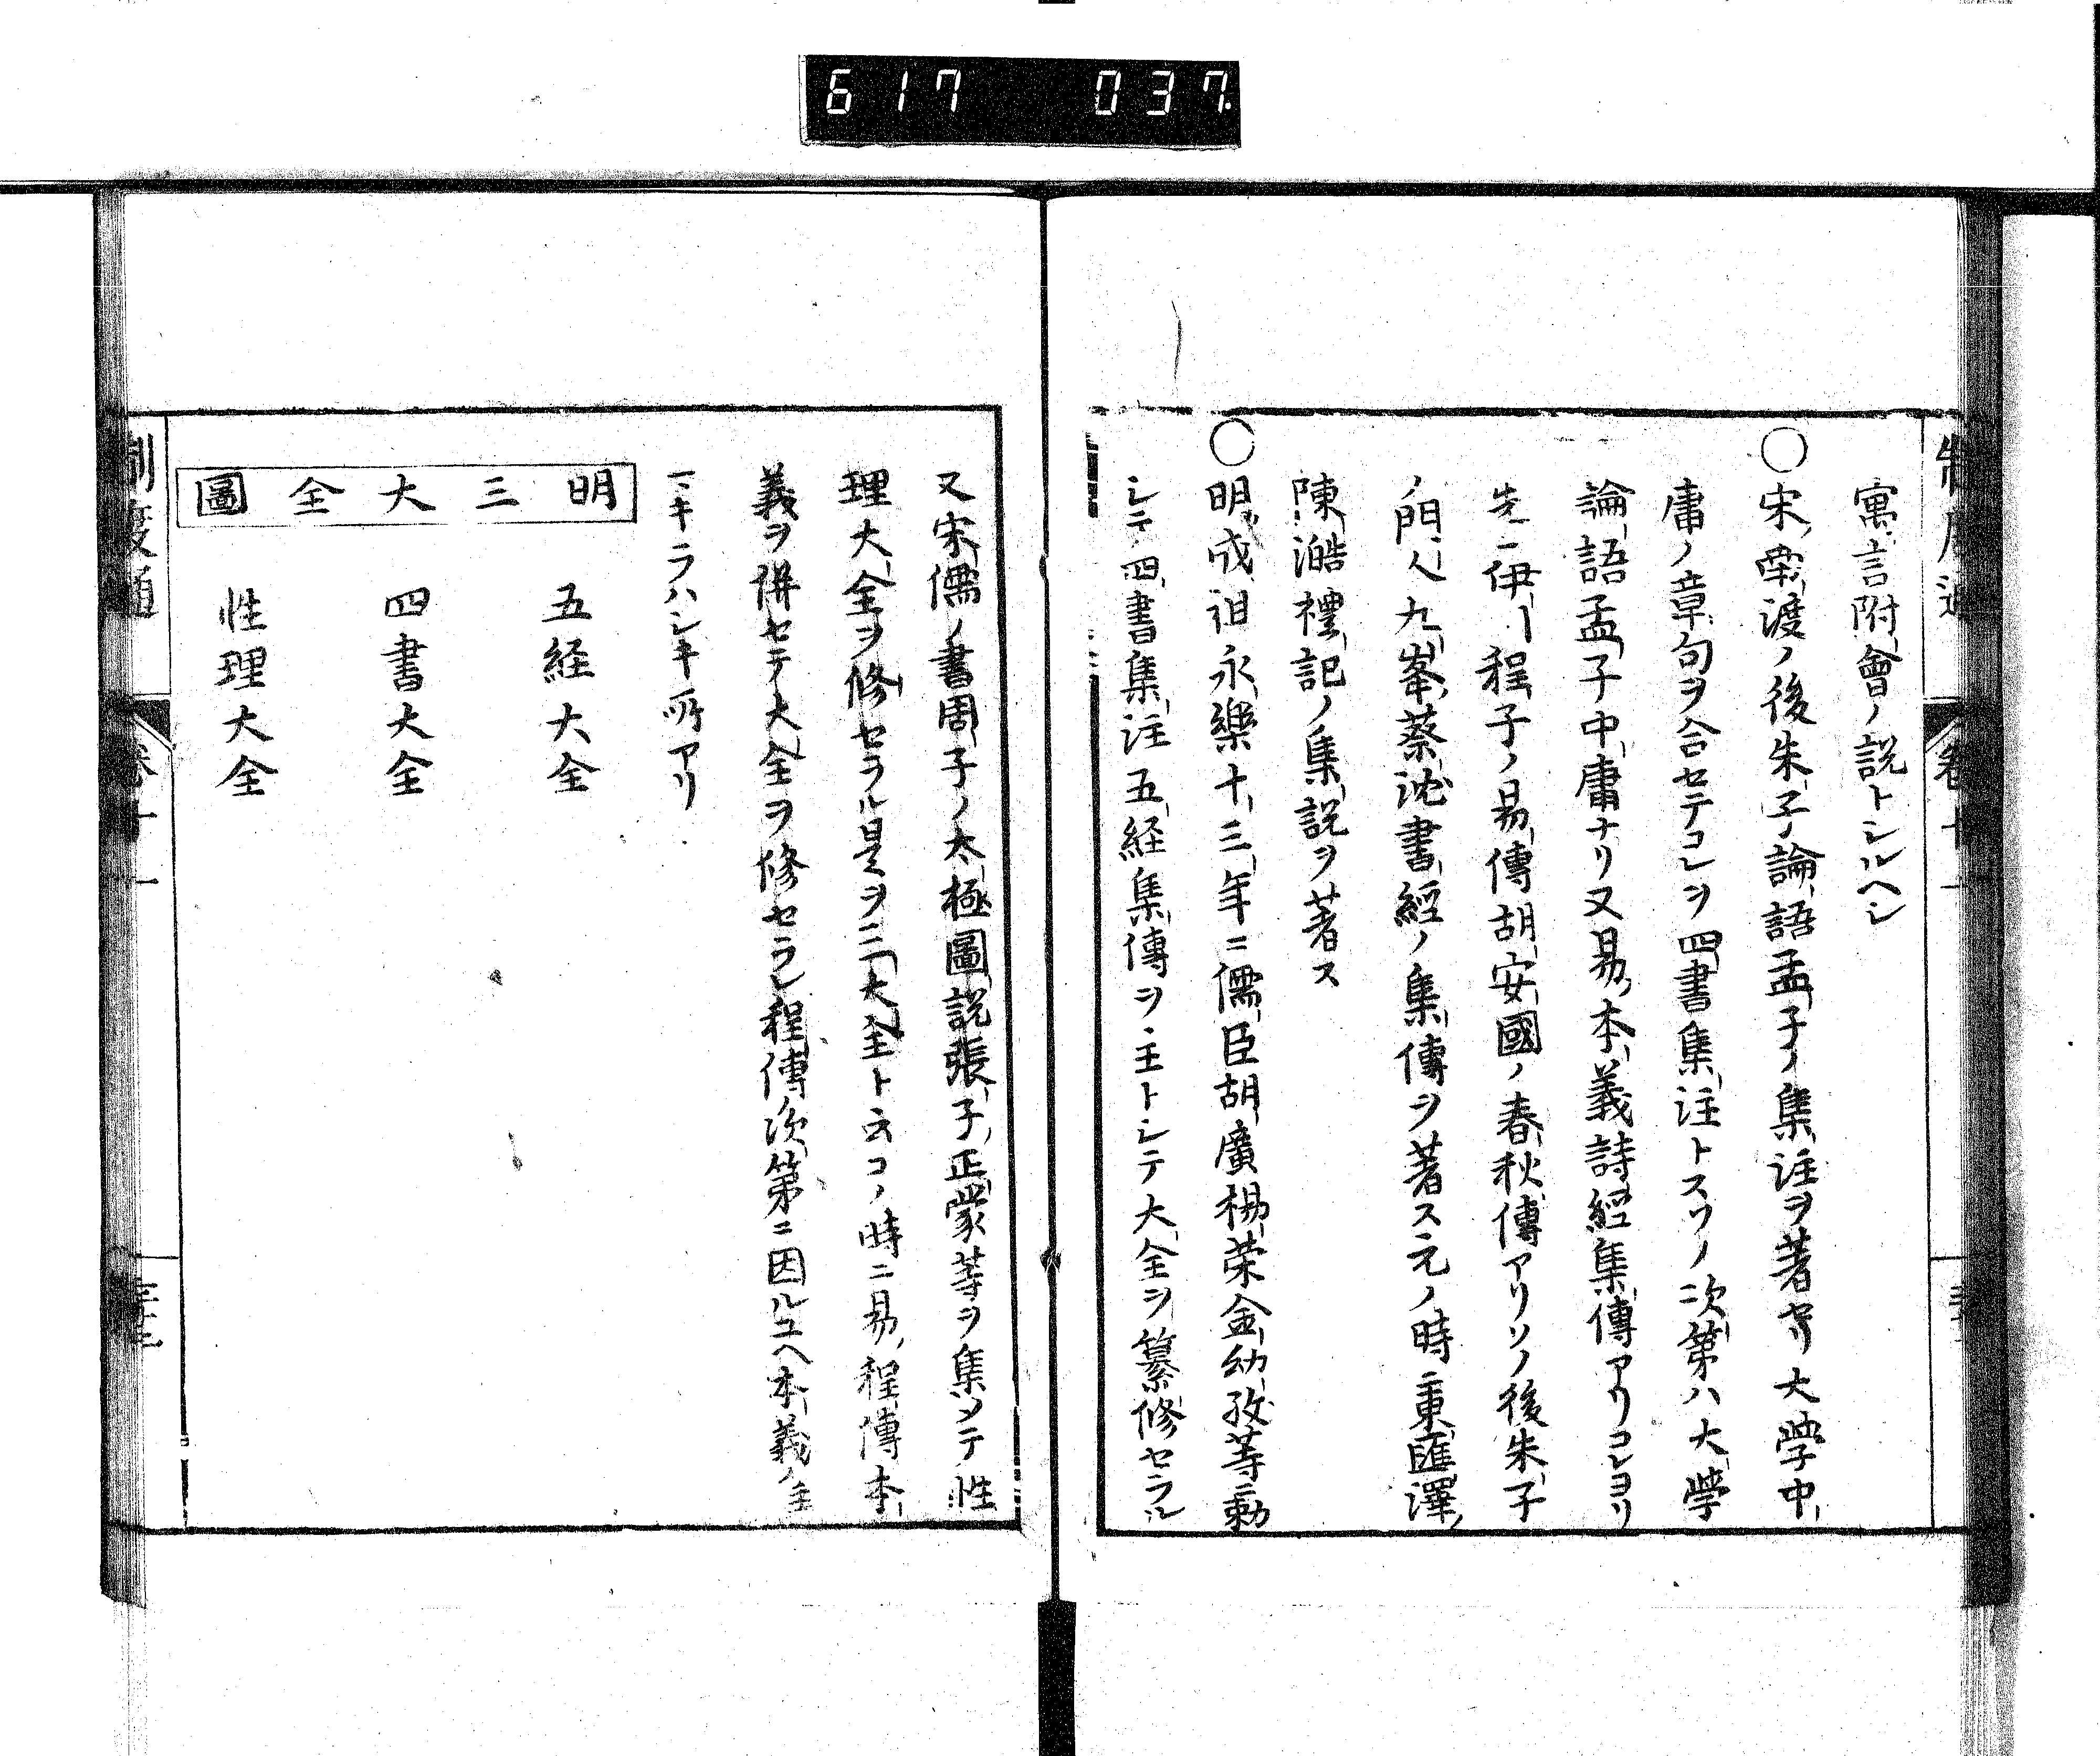 617 037
寓言附會ノ説トシルヘシ
〇宋南渡ノ後朱子論語孟子ノ集註ヲ著セリ大学中
庸ノ章句ヲ合セテコレヲ四書集註トスソノ次第ハ大學
論語孟子中庸ナリ又易本義詩經集傳アリコレヨリ
先ニ伊川程子ノ易傳胡安國ノ春秋傳アリソノ後朱子
ノ門人九峯蔡沈書經ノ集傳ヲ著ス元ノ時東匯澤
陳澔禮記ノ集説ヲ著ス
〇明成祖永樂十三年ニ儒臣胡廣楊荣金幼孜等勅
シテ四書集註五経集傳ヲ主トシテ大全ヲ纂修セラル
又宋儒ノ書周子ノ太極圖説張子正蒙等ヲ集メテ性
理大全ヲ修セラル是ヲ三大全ト云コノ時ニ易程傳本
義ヲ併セテ大全ヲ修セラレ程傳次第ニ因ルユヘ本義ノ全
マキラハシキ所アリ
明三大全圖
五経大全
四書大全
性理大全
制度通 卷十一